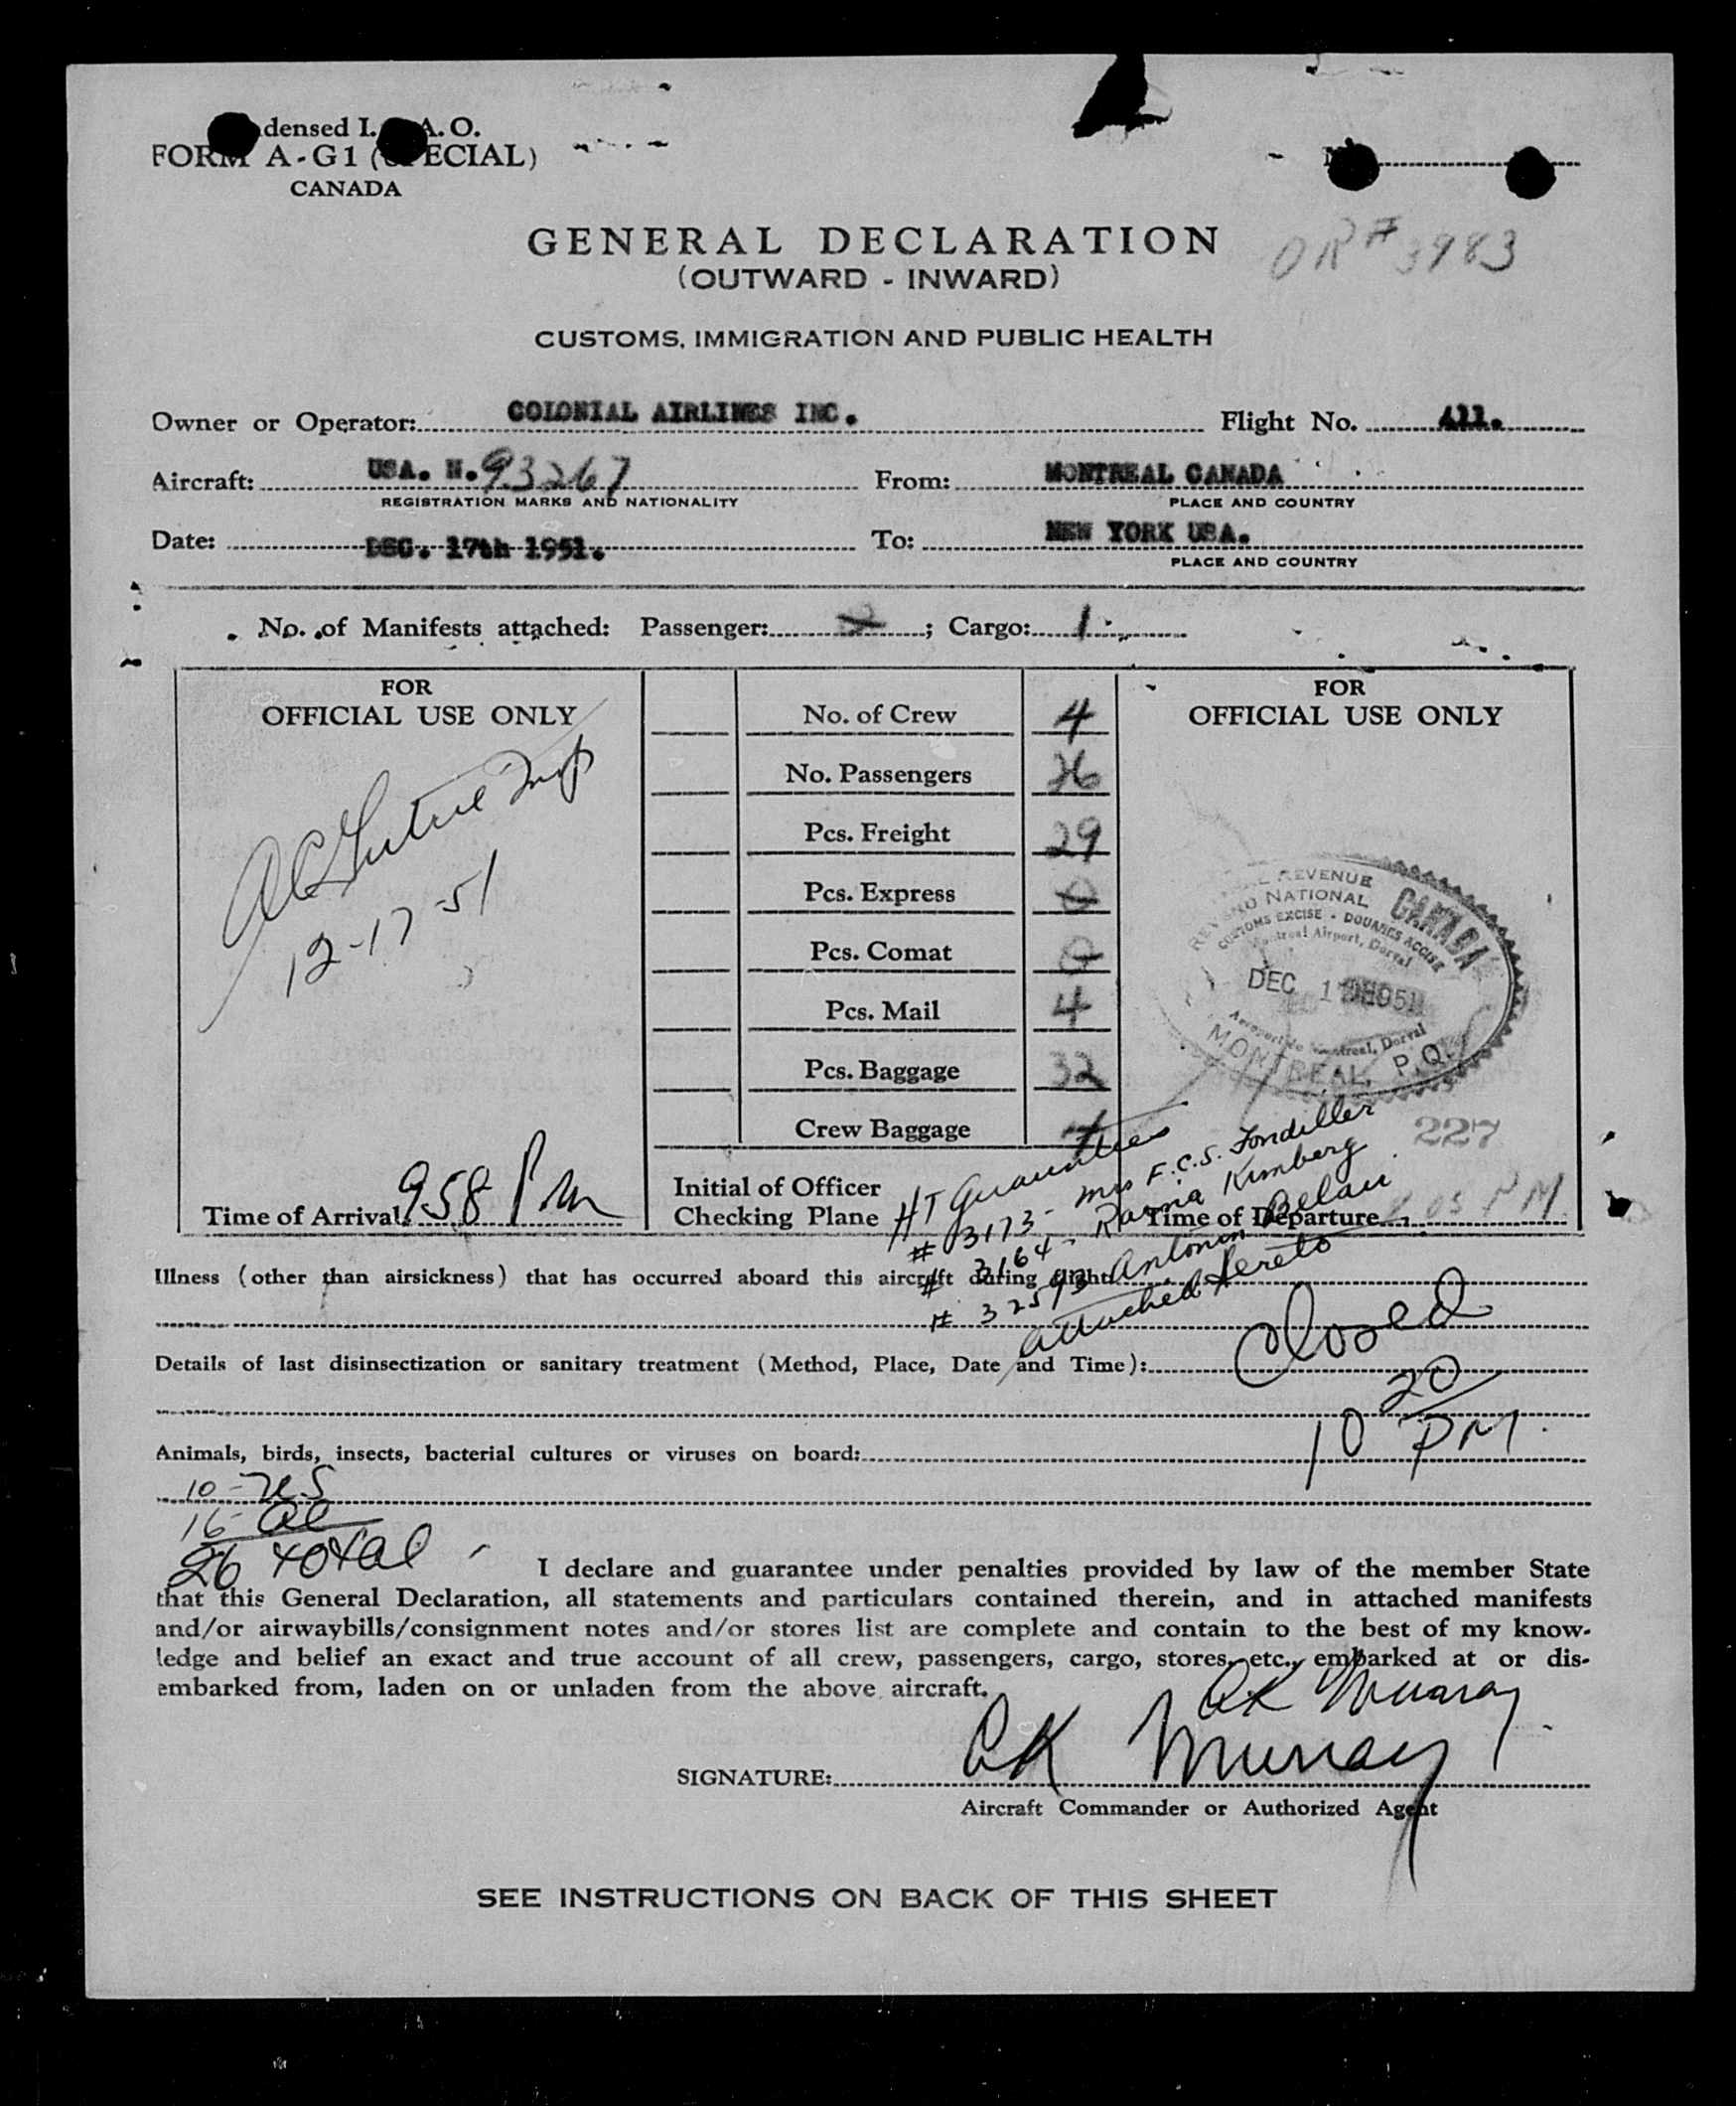 densed I. A. O.
FORM A-G1 (SPECIAL)
CANADA
OR# 3983
GENERAL DECLARATION
(OUTWARD - INWARD)
CUSTOMS, IMMIGRATION AND PUBLIC HEALTH
Owner or Operator: COLONIAL AIRLINES INC. Flight No. 411.
Aircraft: USA. N. 93267 From: MONTREAL CANADA
REGISTRATION MARKS AND NATIONALITY PLACE AND COUNTRY
Date: DEC. 17th 1951. To: NEW YORK USA.
PLACE AND COUNTRY
No. of Manifests attached: Passenger: 2; Cargo: 1
FOR
OFFICIAL USE ONLY
12-17-51
Time of Arrival 958 Pm
No. of Crew 4
No. Passengers 26
Pcs. Freight 29
Pcs. Express 0
Pcs. Comat 0
Pcs. Mail 4
Pcs. Baggage 32
Crew Baggage 4
Initial of Officer
Checking Plane
FOR
OFFICIAL USE ONLY
REVENUE
NATIONAL CANADA
CUSTOMS EXCISE - DOUANES ACCISE
Montreal Airport, Dorval
DEC 17 1951
Aeroport de Montreal, Dorval
MONTREAL, P.Q.
227
Time of Departure 05 PM
HT Guarantees
# 3173 - Mrs F.C.S. Fondiller
# 3164 - Rayna Kimberg
# 32593 Antonin Belau
attached hereto
Illness (other than airsickness) that has occurred aboard this aircraft during flight:
Closed
Details of last disinsectization or sanitary treatment (Method, Place, Date and Time):
10 20 PM.
Animals, birds, insects, bacterial cultures or viruses on board:
10 - US
16 - al
26 total
I declare and guarantee under penalties provided by law of the member State
that this General Declaration, all statements and particulars contained therein, and in attached manifests
and/or airwaybills/consignment notes and/or stores list are complete and contain to the best of my know-
ledge and belief an exact and true account of all crew, passengers, cargo, stores, etc., embarked at or dis-
embarked from, laden on or unladen from the above aircraft.
CK Murray
SIGNATURE: CK Murray
Aircraft Commander or Authorized Agent
SEE INSTRUCTIONS ON BACK OF THIS SHEET